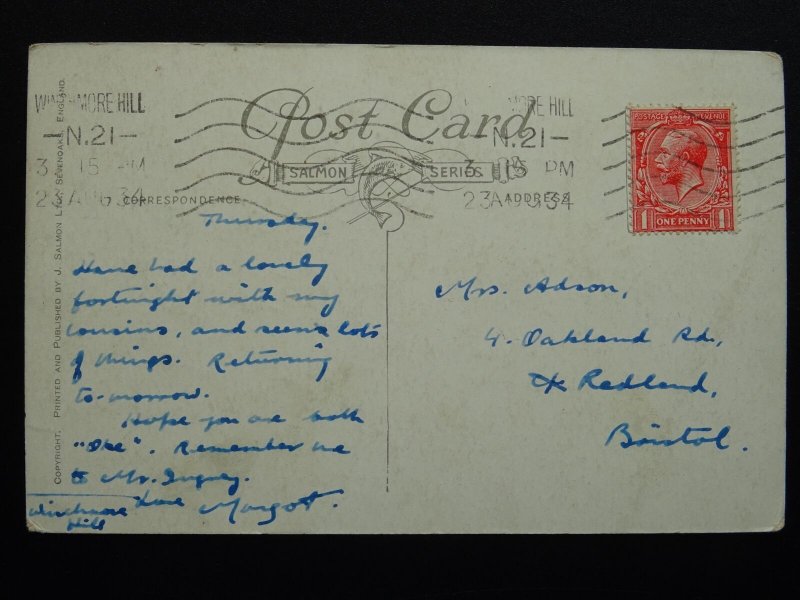 WINCHMORE HILL
—N.21—
3 15 PM
23 AUG 34
Post Card
SALMON SERIES
MORE HILL
N.21—
3 15 PM
23 AUG 34
POSTAGE REVENUE
1 ONE PENNY 1
CORRESPONDENCE
ADDRESS
COPYRIGHT. PRINTED AND PUBLISHED BY J. SALMON LTD., SEVENOAKS, ENGLAND.
Thursday.
Have had a lovely
fortnight with my
cousins, and seen lots
of things. Returning
to-morrow.
Hope you are both
"Oke". Remember me
to Mr.
Love Margot.
Winchmore
Hill
Mrs. Adson,
4. Oakland Rd.,
Redland,
Bristol.